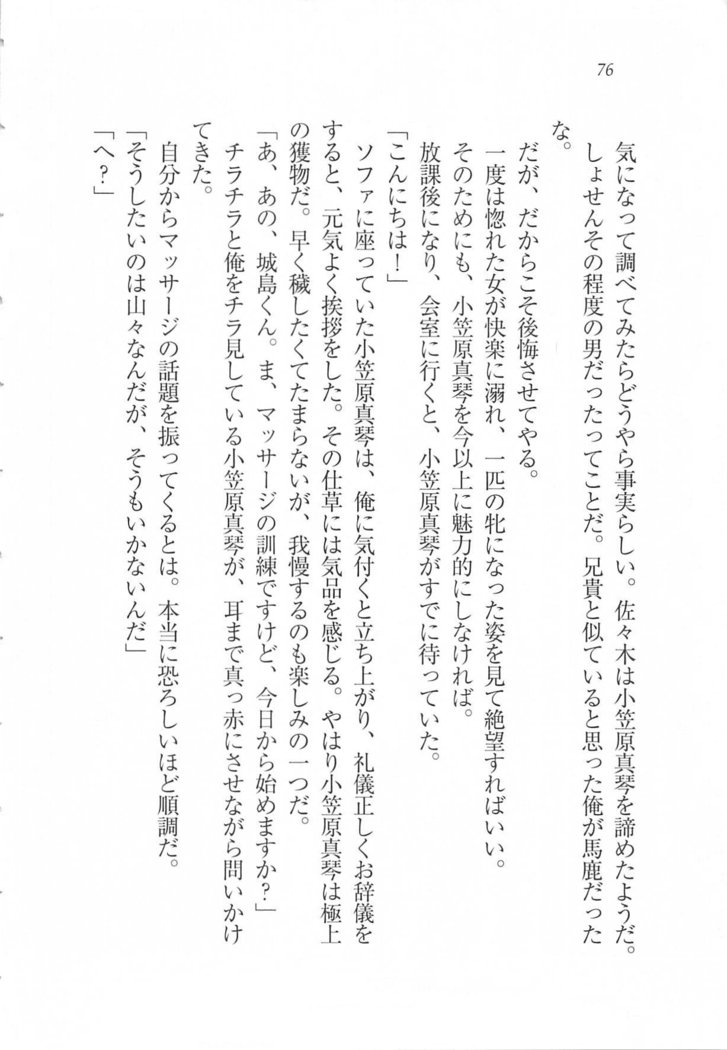 76
気になって調べてみたらどうやら事実らしい。佐々木は小笠原真琴を諦めたようだ。
しょせんその程度の男だったってことだ。兄貴と似ていると思った俺が馬鹿だった
な。
だが、だからこそ後悔させてやる。
一度は惚れた女が快楽に溺れ、一匹の牝になった姿を見て絶望すればいい。
そのためにも、小笠原真琴を今以上に魅力的にしなければ。
放課後になり、会室に行くと、小笠原真琴がすでに待っていた。
「こんにちは！」
ソファに座っていた小笠原真琴は、俺に気付くと立ち上がり、礼儀正しくお辞儀を
すると、元気よく挨拶をした。その仕草には気品を感じる。やはり小笠原真琴は極上
の獲物だ。早く穢したくてたまらないが、我慢するのも楽しみの一つだ。
「あ、あの、城島くん。ま、マッサージの訓練ですけど、今日から始めますか？」
チラチラと俺をチラ見している小笠原真琴が、耳まで真っ赤にさせながら問いかけ
てきた。
自分からマッサージの話題を振ってくるとは。本当に恐ろしいほど順調だ。
「そうしたいのは山々なんだが、そうもいかないんだ」
「へ？」